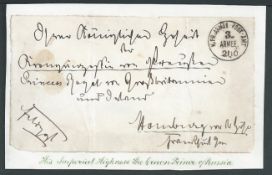 Ihrer Königlichen Hoheit
der
Kronprinzessin von Preußen
Princess Royal von Großbritannien
und Irland
Homburg v. d. Höhe
Frankfurt
Feldpost
3te
ARMEE
His Imperial Highness the Crown Prince of Prussia